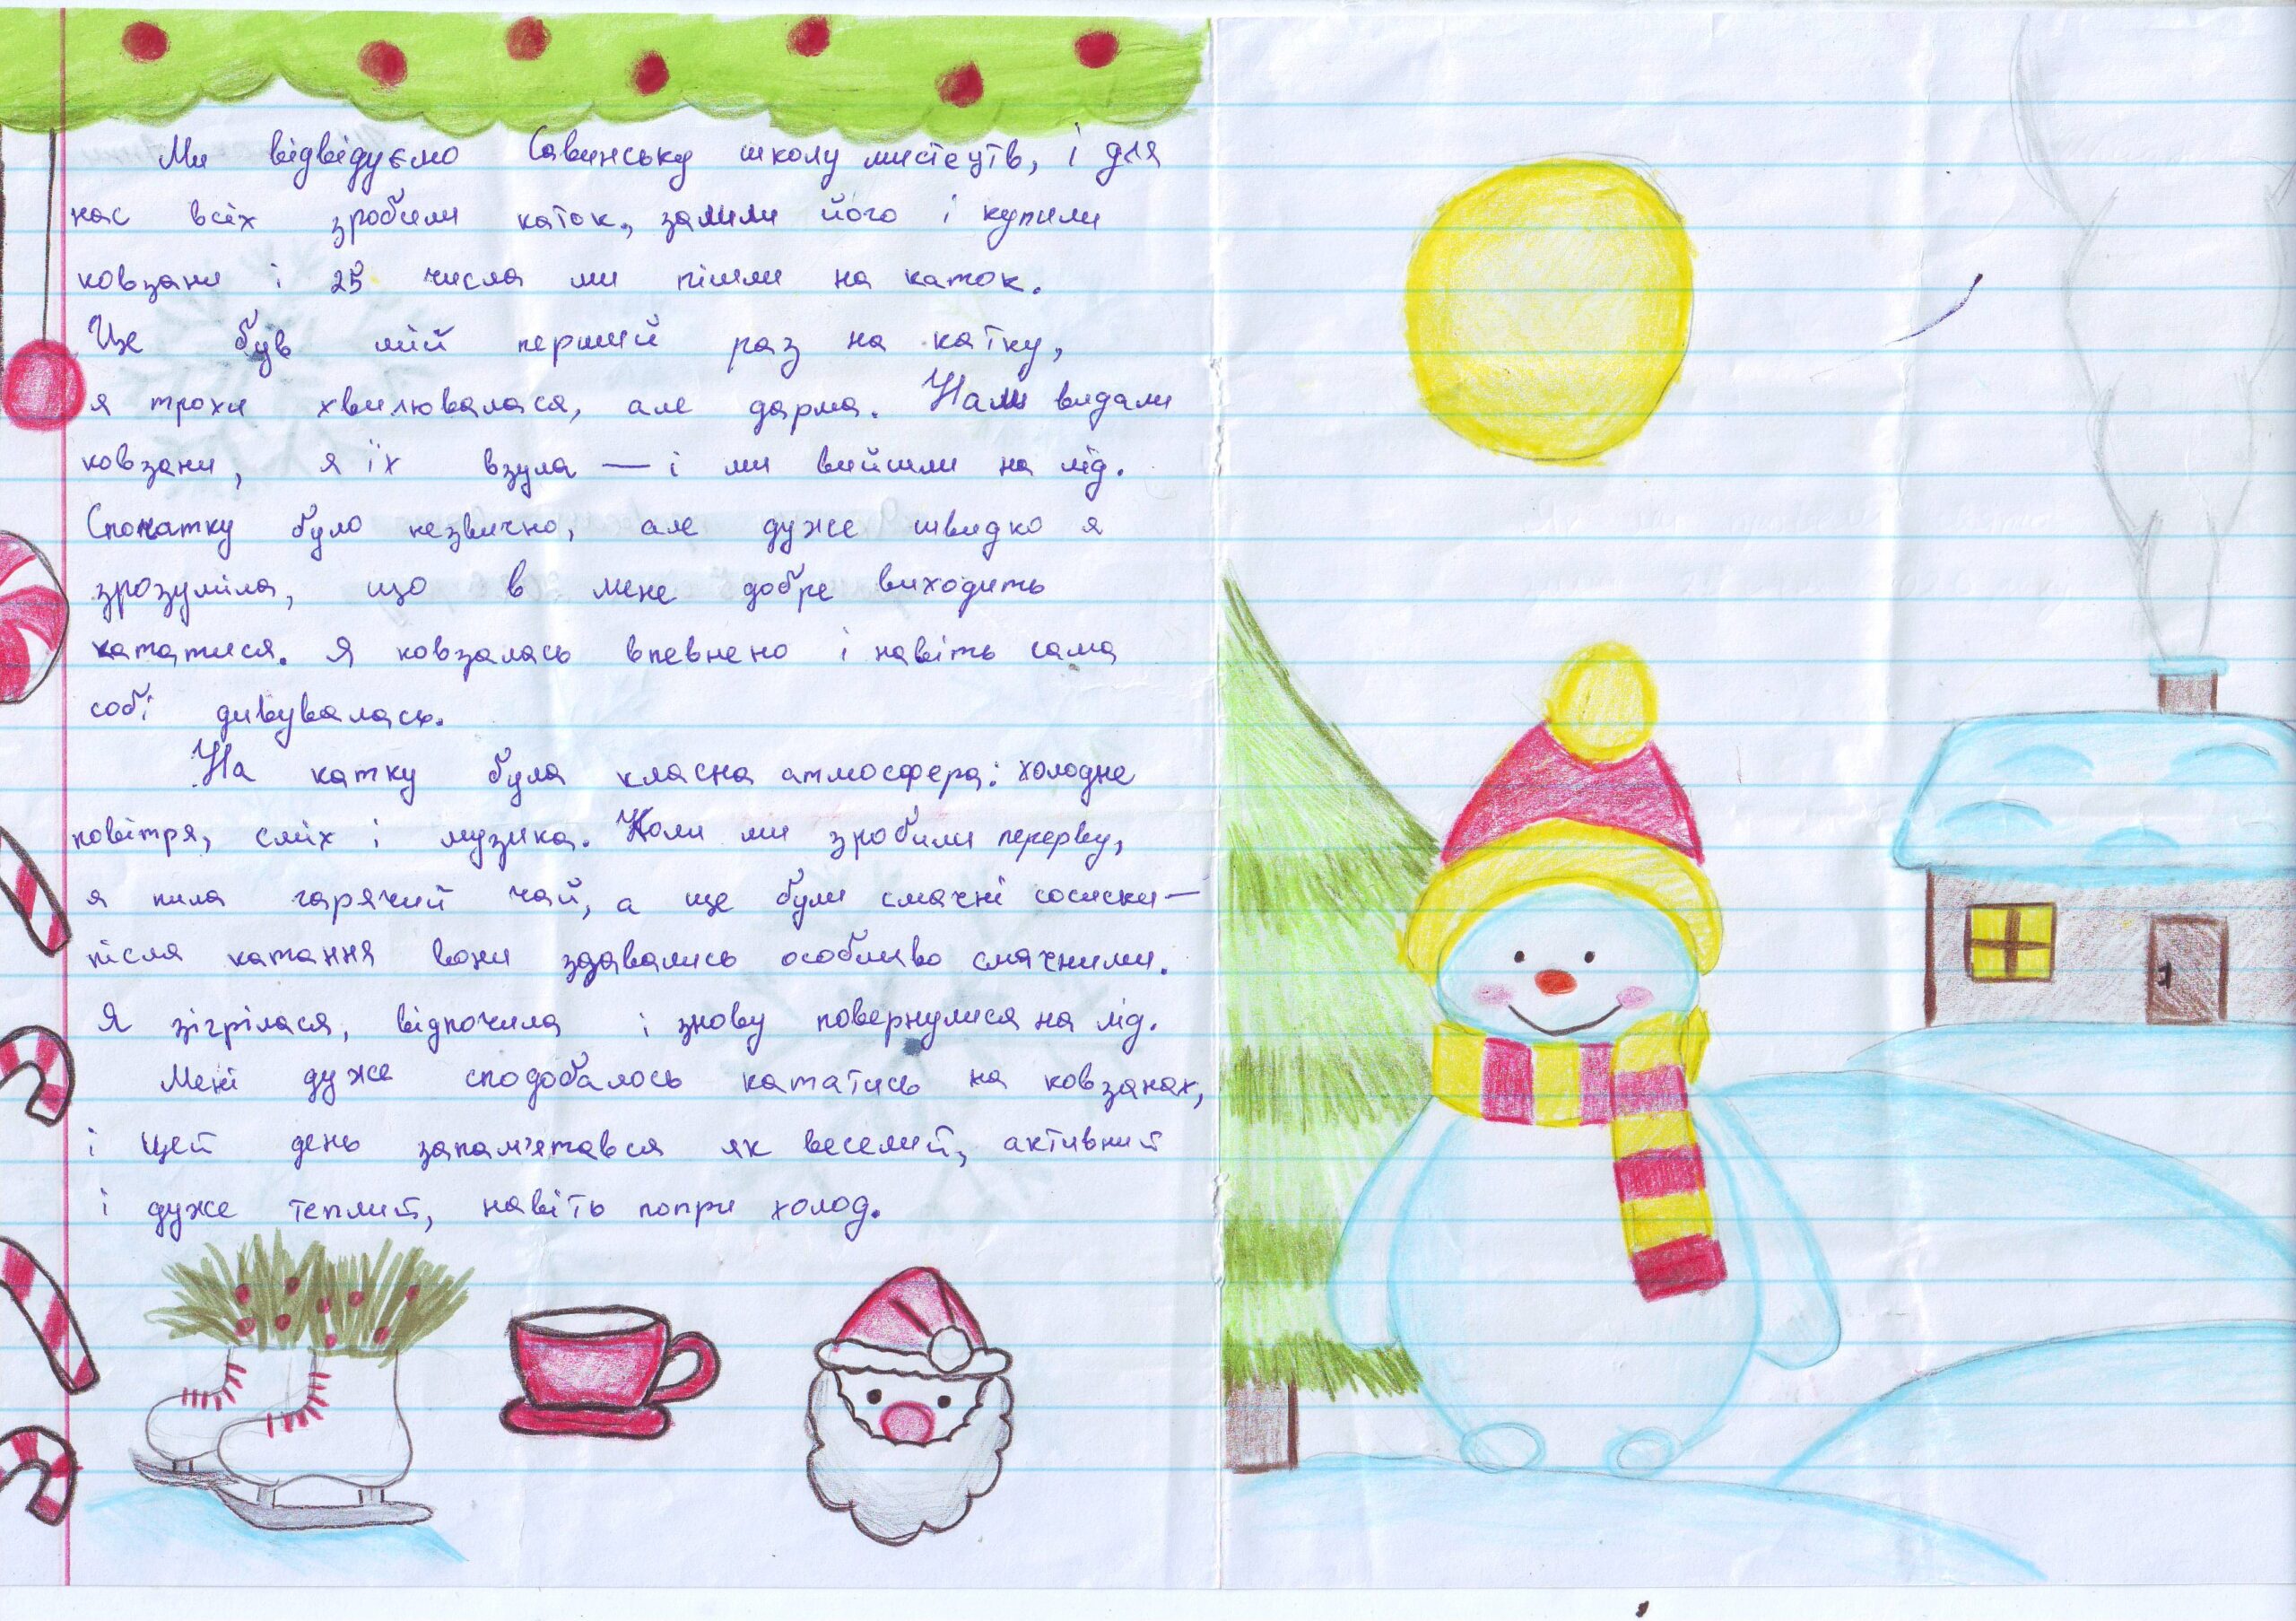 Ми відвідуємо Савинську школу мистецтв, і для
нас всіх зробили каток, залили його і купили
ковзани і 25 числа ми пішли на каток.
Це був мій перший раз на катку,
я трохи хвилювалася, але дарма. Нам видали
ковзани, я їх взула — і ми вийшли на лід.
Спочатку було незвично, але дуже швидко я
зрозуміла, що в мене добре виходить
кататися. Я ковзалась впевнено і навіть сама
собі дивувалась.
На катку була класна атмосфера: холодне
повітря, сміх і музика. Коли ми зробили перерву,
я пила гарячий чай, а ще були смачні сосиски —
після катання вони здавались особливо смачними.
Я зігрілася, відпочила і знову повернулися на лід.
Мені дуже сподобалось кататись на ковзанах,
і цей день запам'ятався як веселий, активний
і дуже теплий, навіть попри холод.